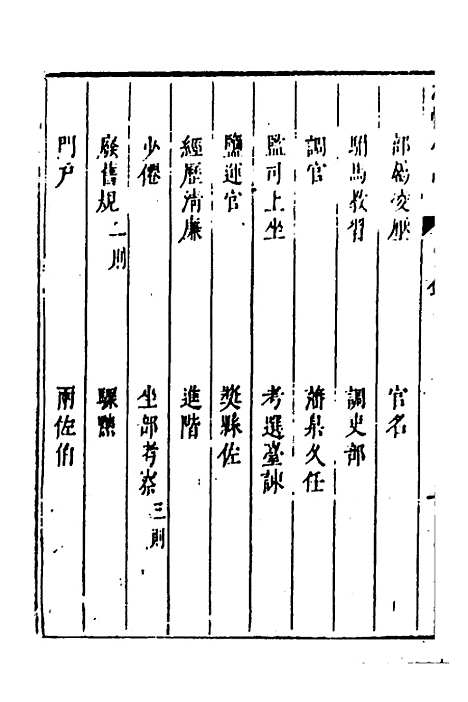 部郎交壓 官名
駙馬教習 調吏部
調官 藩臬久任
監司上坐 考選臺諫
鹽運官 奬縣佐
經歷清廉 進階
少僊 坐部考察三則
廢舊規二則 驟𨽻
門戶 兩佐伯